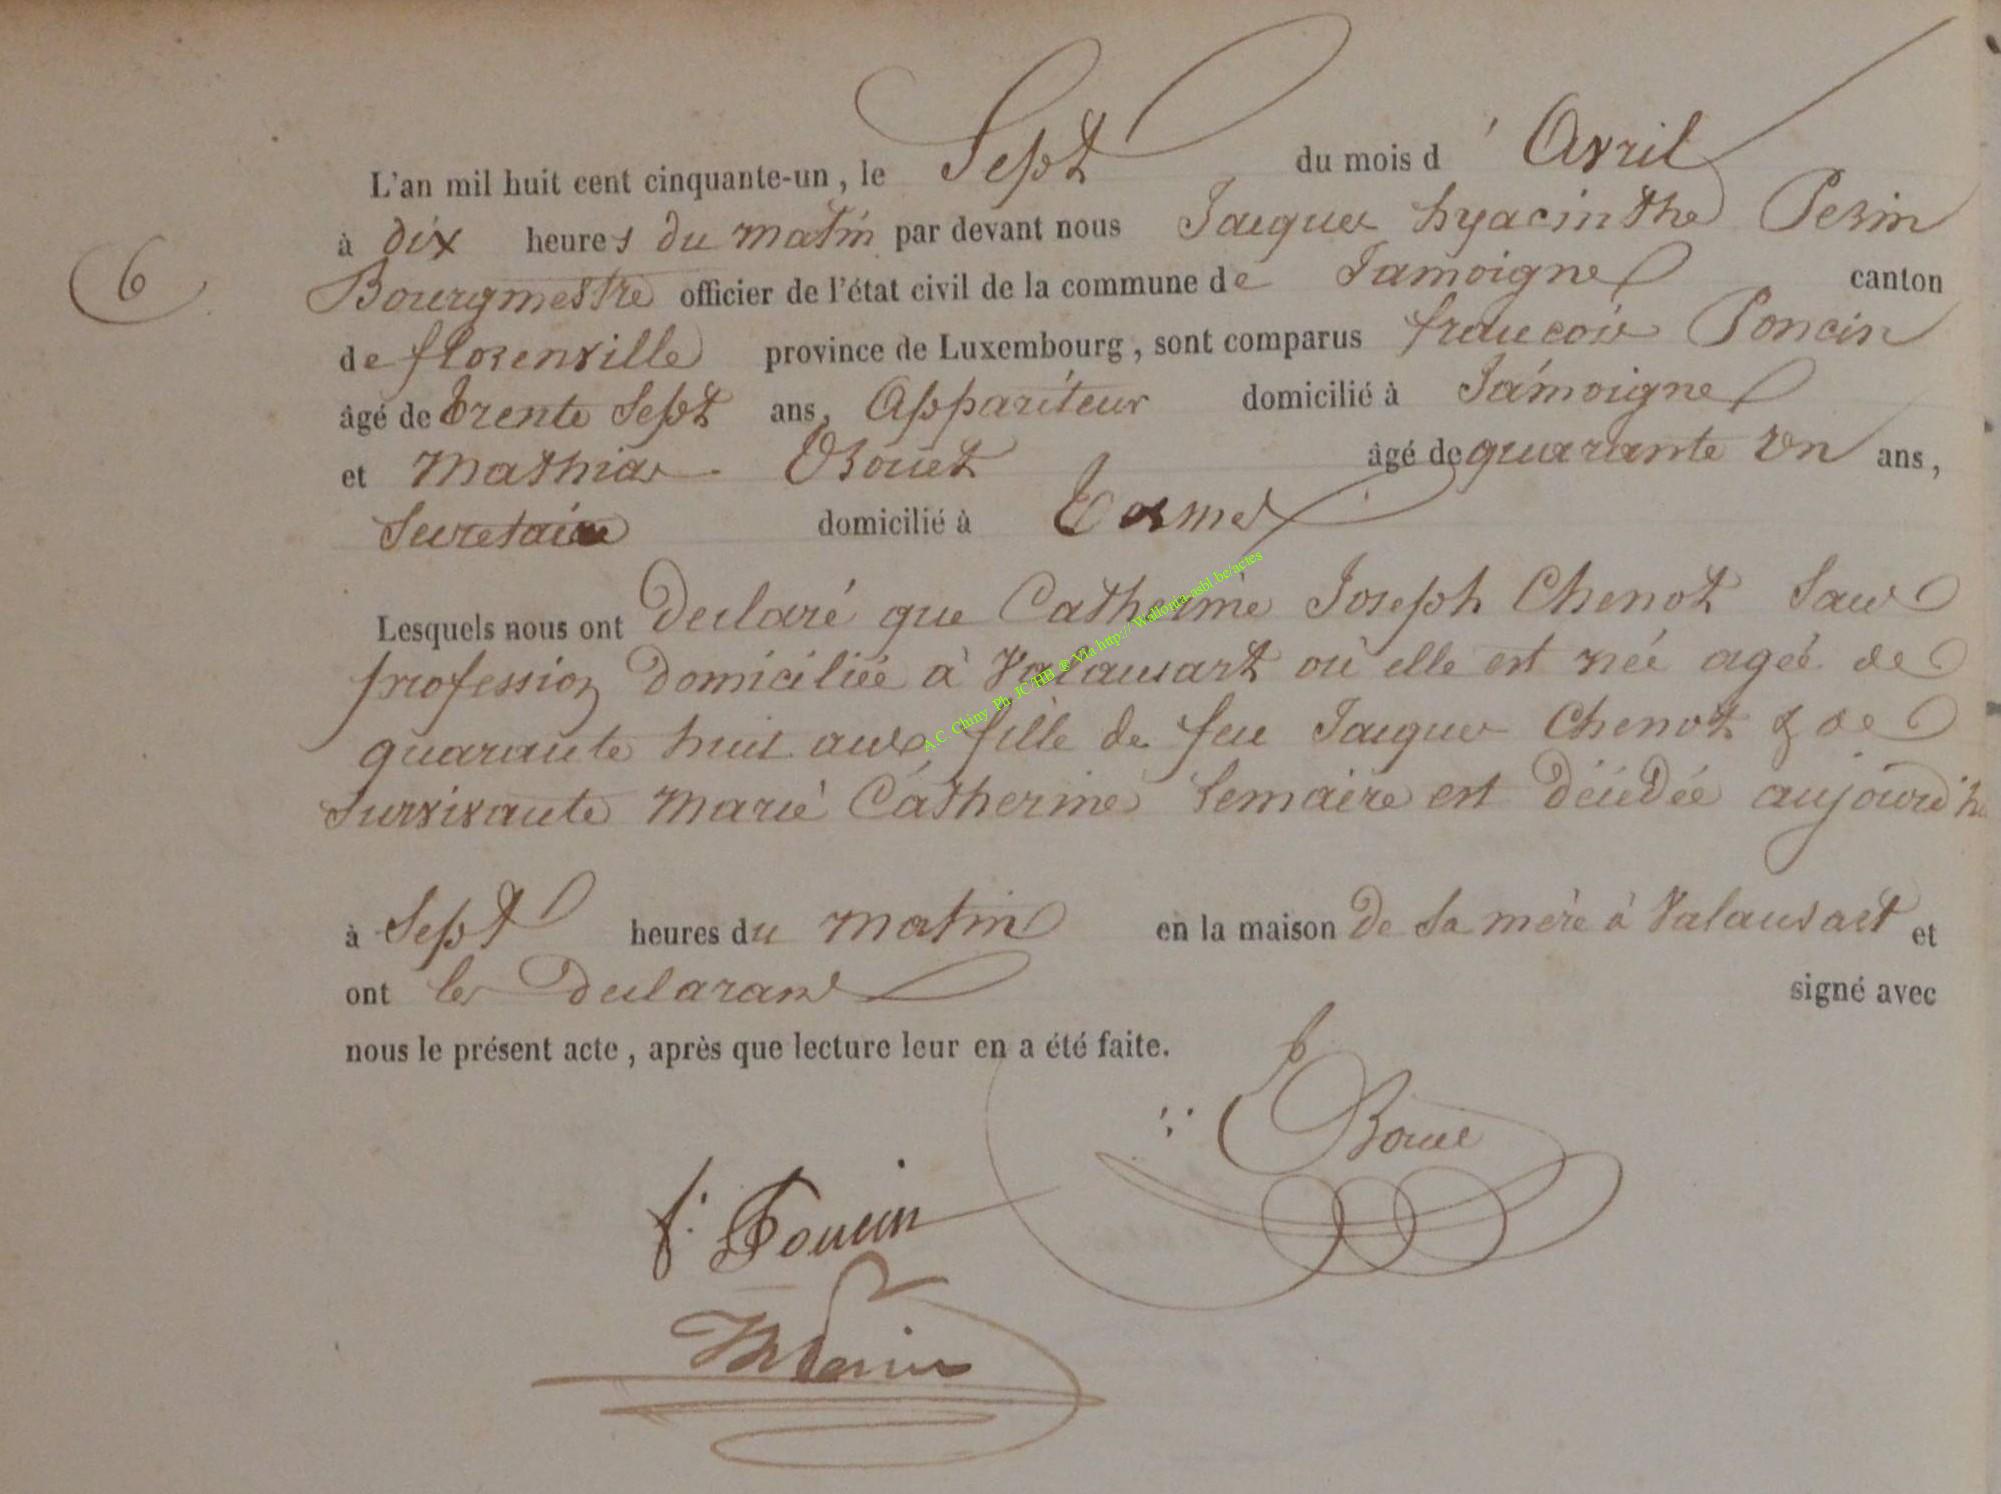 L'an mil huit cent cinquante-un, le Sept du mois d'Avril
à dix heures du matin par devant nous Jacques hyacinthe Perin
6 Bourgmestre officier de l'état civil de la commune de Jamoigne canton
de florenville province de Luxembourg, sont comparus francois Poncin
âgé de trente sept ans, Appariteur domicilié à Jamoigne
et Mathias Bouet âgé de quarante un ans,
Secretaire domicilié à Termes
Lesquels nous ont declaré que Catherine Joseph Chenot Sans
profession domiciliée à Valansart où elle est née agée de
quarante huit ans, fille de feu Jacques Chenot & de
survivante Marie Catherine Lemaire est décédée aujourd'h
à Sept heures du matin en la maison de sa mère à Valansart et
ont les declarans signé avec
nous le présent acte, après que lecture leur en a été faite.
Boue
f. Poncin
Perin
A.C. Chiny Ph JC/HB ® Via http://Wallonia-asbl.be/actes